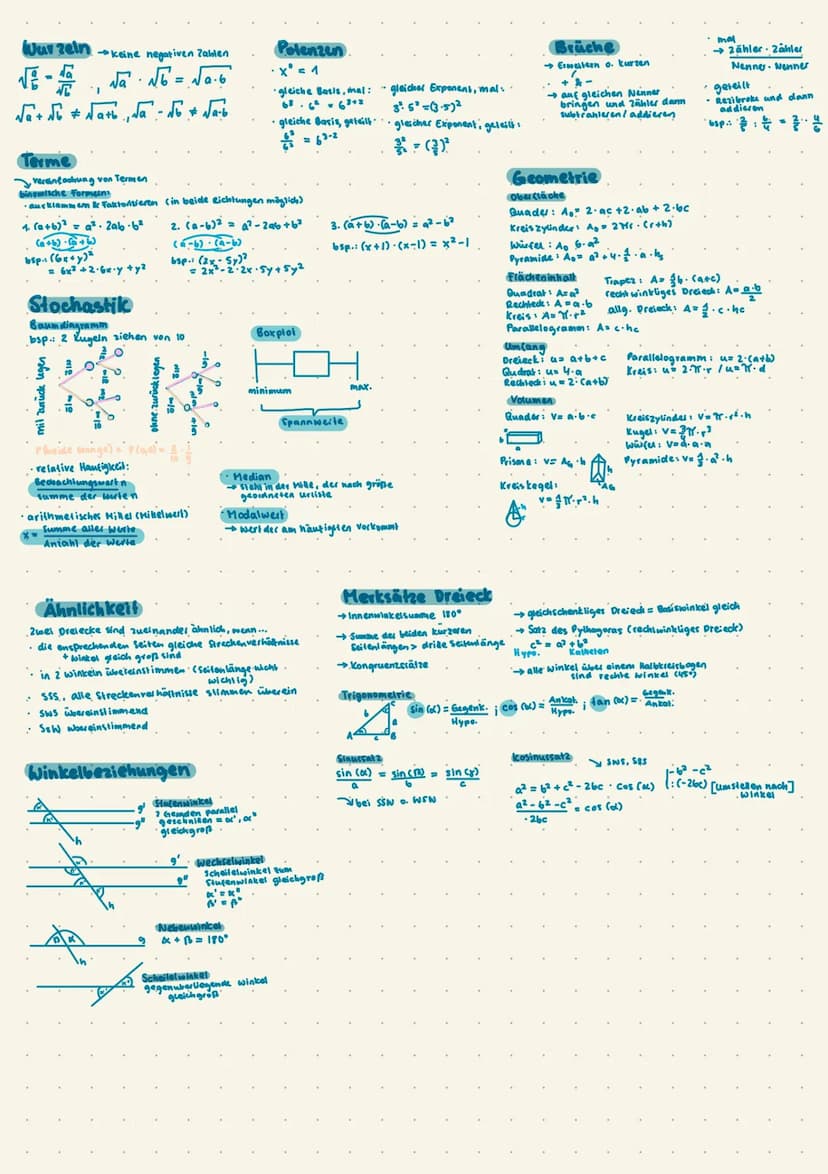 Wurzeln → keine negativen Zahlen
√a/b = √a/√b , √a · √b = √a·b
√a + √b ≠ √a+b , √a - √b ≠ √a-b
Potenzen
· x⁰ = 1
· gleiche Basis, mal:
6³ · 6² = 6³⁺²
· gleiche Basis, geteilt:
6³/6² = 6³⁻²
· gleicher Exponent, mal:
3² · 5² = (3·5)²
· gleicher Exponent, geteilt:
3²/5² = (3/5)²
Brüche
→ Erweitern o. kürzen
+ & -
→ auf gleichen Nenner
bringen und Zähler dann
subtrahieren/addieren
· mal
→ Zähler · Zähler
Nenner · Nenner
· geteilt
bsp.: 2/5 : 6/4 = 2/5 · 4/6
Terme
→ Vereinfachung von Termen
binomische Formeln:
· ausklammern & Faktorisieren (in beide Richtungen möglich)
1. (a+b)² = a² · 2ab · b²
(a+b) · (a+b)
bsp.: (6x+y)²
= 6x² + 2·6x·y + y²
2. (a-b)² = a² - 2ab + b²
(a-b) · (a-b)
bsp.: (2x-5y)²
= 2x² - 2·2x·5y + 5y²
3. (a+b) · (a-b) = a² - b²
bsp.: (x+1) · (x-1) = x² - 1
Geometrie
Oberfläche
Quader: A₀ = 2·ac + 2·ab + 2·bc
Kreiszylinder: A₀ = 2πr · (r+h)
Würfel: A₀ 6·a²
Pyramide: A₀ = a² + 4 · 1/2 · a · hs
Flächeninhalt
Quadrat: A = a²
Rechteck: A = a·b
Kreis: A = π·r²
Parallelogramm: A = c·hc
Trapez: A = 1/2 h · (a+c)
rechtwinkliges Dreieck: A = a·b/2
allg. Dreieck: A = 1/2 · c · hc
Umfang
Dreieck: u = a+b+c
Qudrat: u = 4·a
Rechteck: u = 2·(a+b)
Parallelogramm: u = 2·(a+b)
Kreis: u = 2·π·r / u = π·d
Volumen
Quader: V = a·b·c
a
Prisma: V = AG · h
h
AG
Kreiskegel:
h
r
V = 1/3 π · r² · h
Kreiszylinder: V = π·r²·h
Würfel: V = a·a·a
Pyramide: V = 1/3 · a² · h
Stochastik
Baumdiagramm
bsp.: 2 Kugeln ziehen von 10
mit zurück legen
ohne zurücklegen
Boxplot
minimum
max.
Spannweite
· relative Häufigkeit:
Beobachtungswert n
Summe der Werte n
· arithmetisches Mittel (Mittelwert)
x = Summe aller Werte
Anzahl der Werte
· Median
→ steht in der Mitte, der nach größe
geordneten Urliste
· Modalwert
→ Wert der am häufigsten vorkommt
Ähnlichkeit
Zwei Dreiecke sind zueinander ähnlich, wenn...
· die entsprechenden Seiten gleiche Streckenverhältnisse
+ Winkel gleich groß sind
· in 2 Winkeln übereinstimmen (Seitenlänge nicht
wichtig)
· SSS, alle Streckenverhältnisse stimmen überein
· SWS übereinstimmend
· SsW übereinstimmend
Merksätze Dreieck
→ Innenwinkelsumme 180°
→ Summe der beiden kürzeren
Seitenlängen > dritte Seitenlänge
→ Kongruenzsätze
→ gleichschenkliges Dreieck = Basiswinkel gleich
→ Satz des Pythagoras (rechtwinkliges Dreieck)
c² = a² + b²
Hypo. Katheten
→ alle Winkel über einem Halbkreisbogen
sind rechte Winkel (45°)
Trigonometrie
C
b
a
A
c
B
sin (α) = Gegenk./Hypo. ; cos (α) = Ankat./Hypo. ; tan (α) = Gegenk./Ankat.
Sinussatz
sin(α)/a = sin(β)/b = sin(γ)/c
→ bei SSW o. WSW
Kosinussatz → SWS, SSS
a² = b² + c² - 2bc · cos (α) |-b² -c²
|:(-2bc) [umstellen nach]
Winkel
a² - b² - c²/-2bc = cos (α)
Winkelbeziehungen
g'
g''
h
Stufenwinkel
2 Geraden parallel
geschnitten = α', α''
gleichgroß
g'
g''
h
Wechselwinkel
Scheitelwinkel zum
Stufenwinkel gleichgroß
α' = α''
β' = β''
β
α
g
h
Nebenwinkel
α + β = 180°
Scheitelwinkel
gegenüberliegende Winkel
gleichgroß